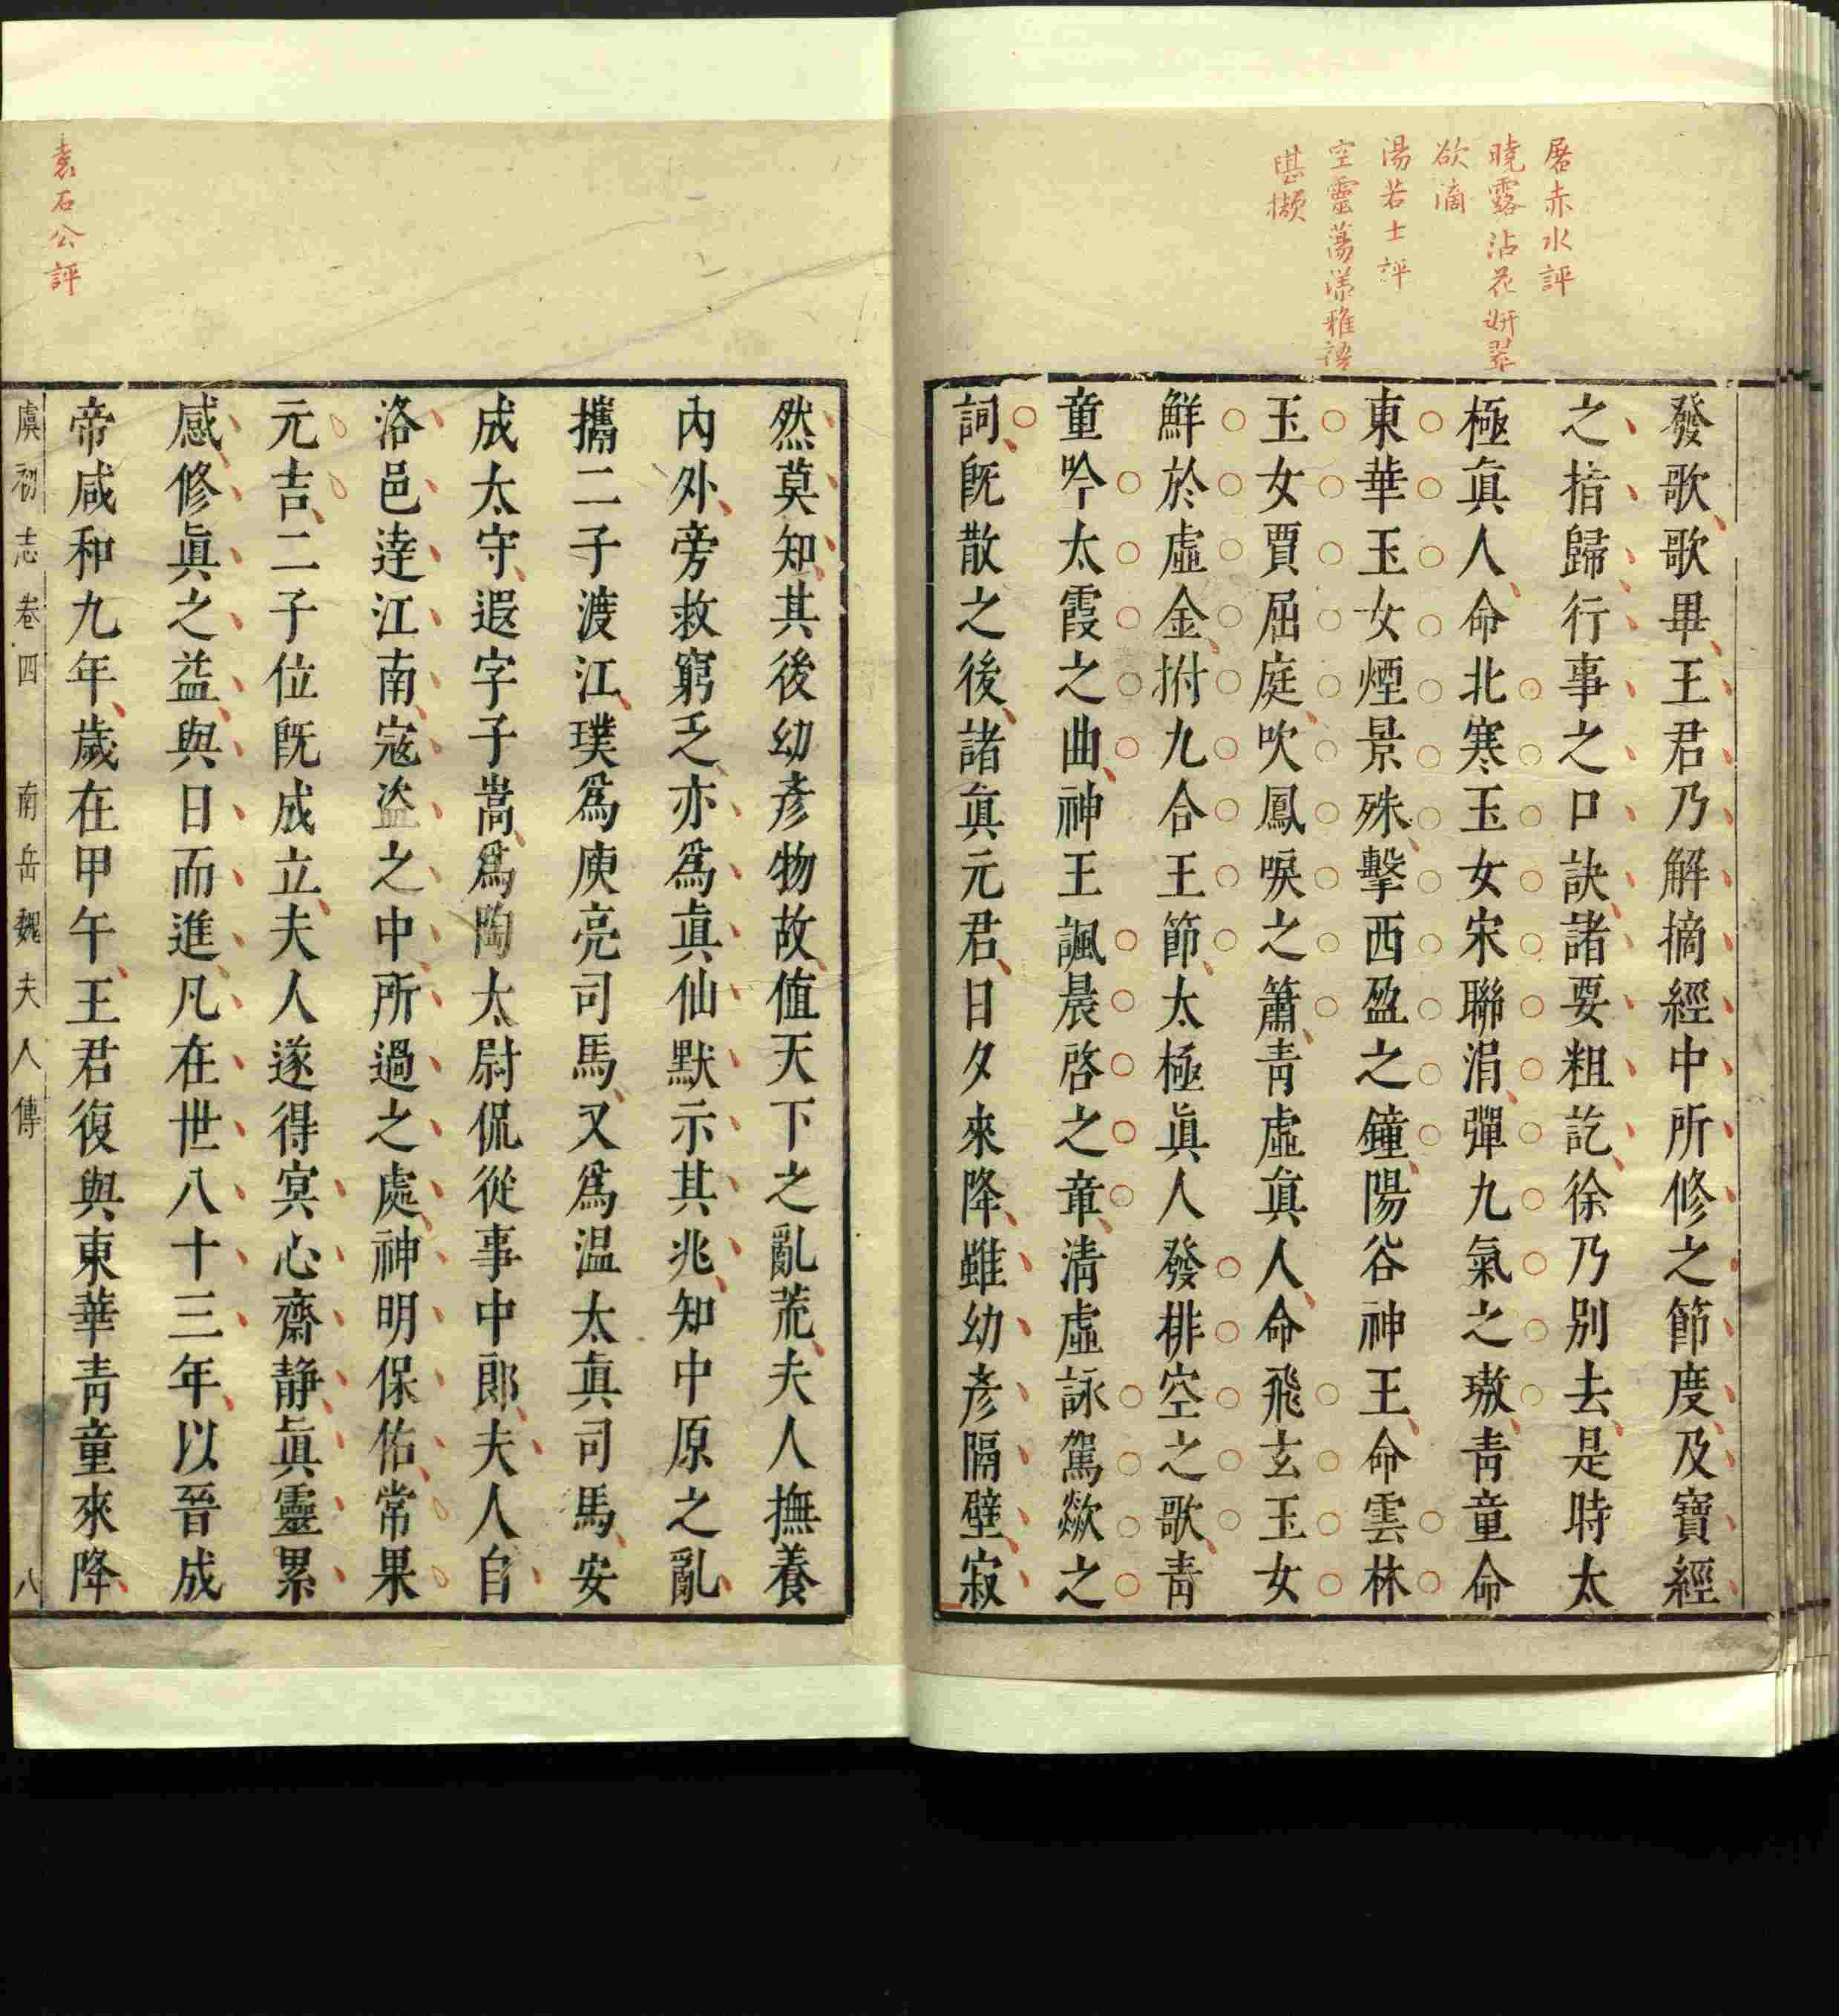 屠赤水評
曉露沾花妍翠
欲滴
湯若士評
空靈蕩漾雅語
堪擷
發歌歌畢王君乃解摘經中所修之節度及寶經
之指歸行事之口訣諸要粗訖徐乃別去是時太
極眞人命北寒玉女宋聯涓彈九氣之璈青童命
東華玉女煙景殊擊西盈之鐘陽谷神王命雲林
玉女賈屈庭吹鳳唳之簫青虛眞人命飛玄玉女
鮮於虛金拊九合王節太極眞人發排空之歌青
童吟太霞之曲神王諷晨啓之章清虛詠駕歘之
詞旣散之後諸眞元君日夕來降雖幼彥隔壁寂
袁石公評
然莫知其後幼彥物故値天下之亂荒夫人撫養
內外旁救窮乏亦爲眞仙默示其兆知中原之亂
攜二子渡江璞爲庾亮司馬又爲温太眞司馬安
成太守遐字子嵩爲陶太尉侃從事中郎夫人自
洛邑達江南寇盜之中所過之處神明保佑常果
元吉二子位旣成立夫人遂得冥心齋静眞靈累
感修眞之益與日而進凡在世八十三年以晉成
帝咸和九年歲在甲午王君復與東華青童來降
虞初志 卷四 南岳魏夫人傳 八